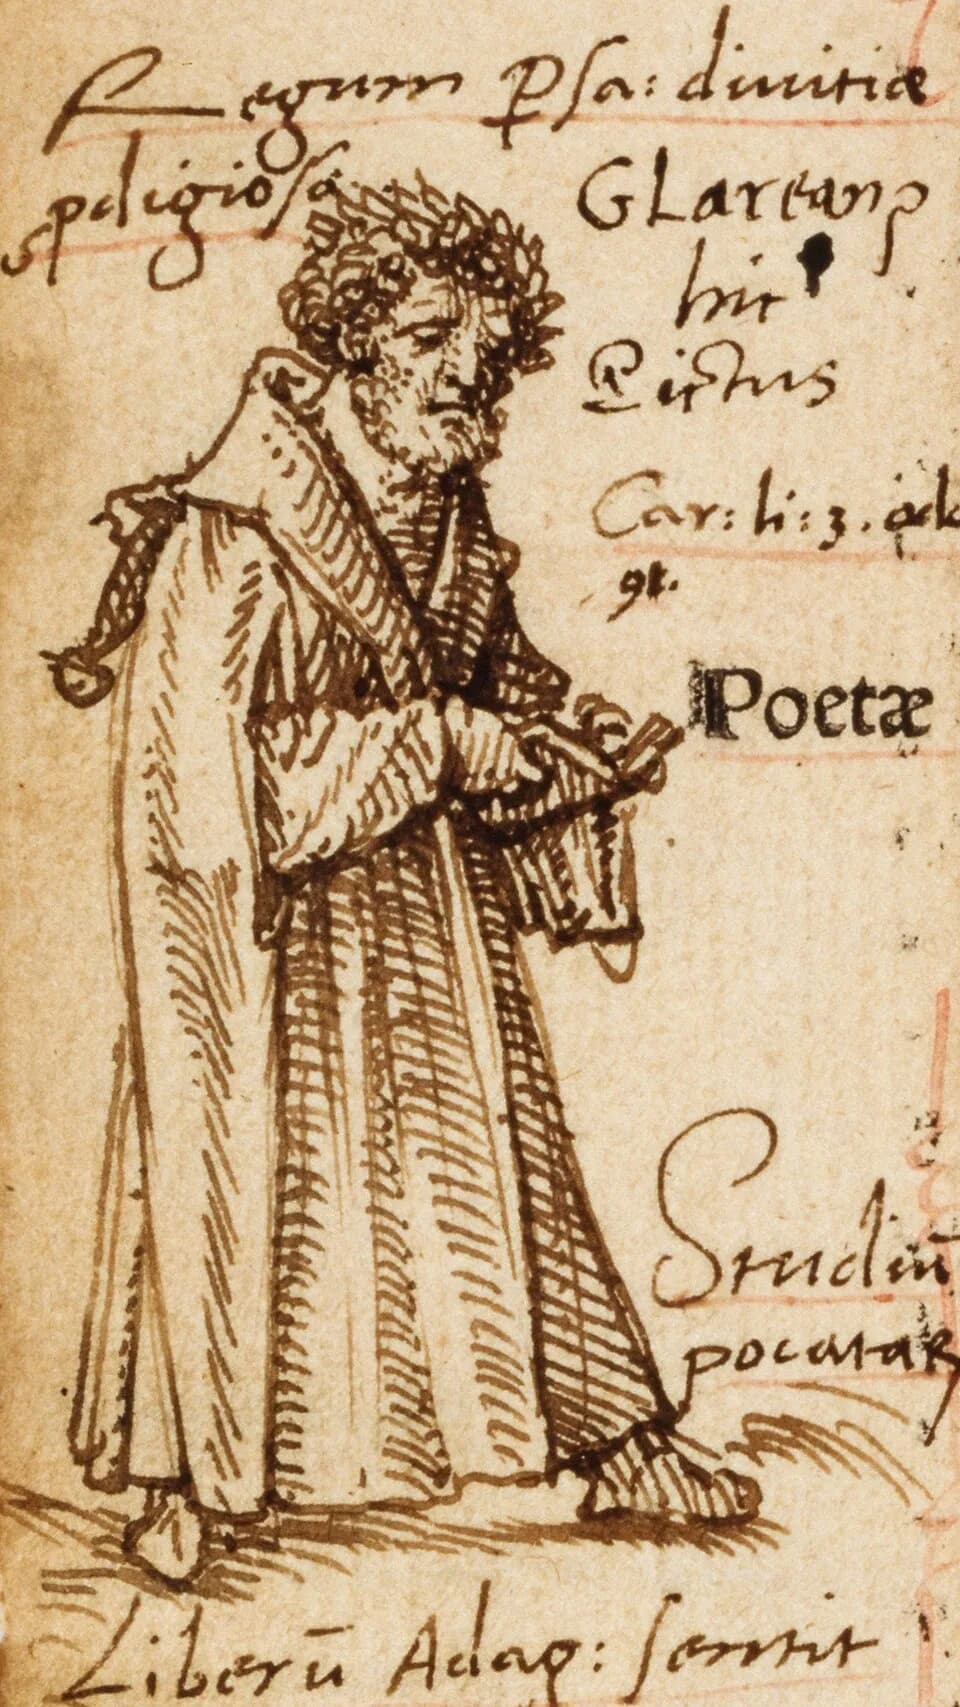 Regum Psa: diuitiæ
pdigiosa
GLareanꝯ
hic
Pictus
Car: li: 3. ode
9t.
Poetæ
Studiū
poetarꝝ
Liberū Adag: sentit